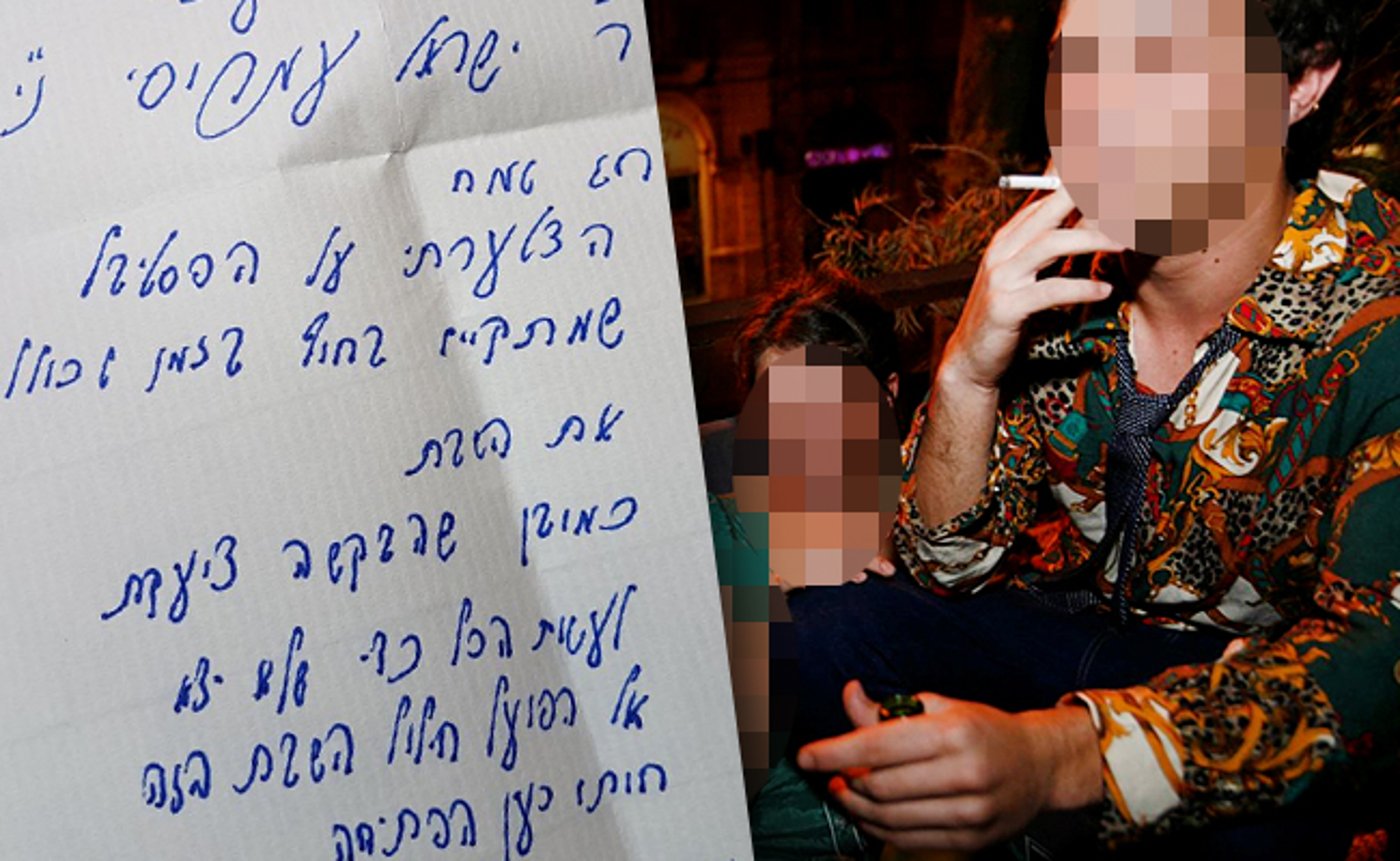 ר ישראל עמקיסי ני"
חג שמח
הצטערתי על הפסטיבל
שמתקיים בחוף בזמן וכולל
את השבת
כמובן שהבקשה ציעקת
לעשות הכל כדי שלא יצא
אל הפועל חילול השבת הזה
חותו כען הפתיחה